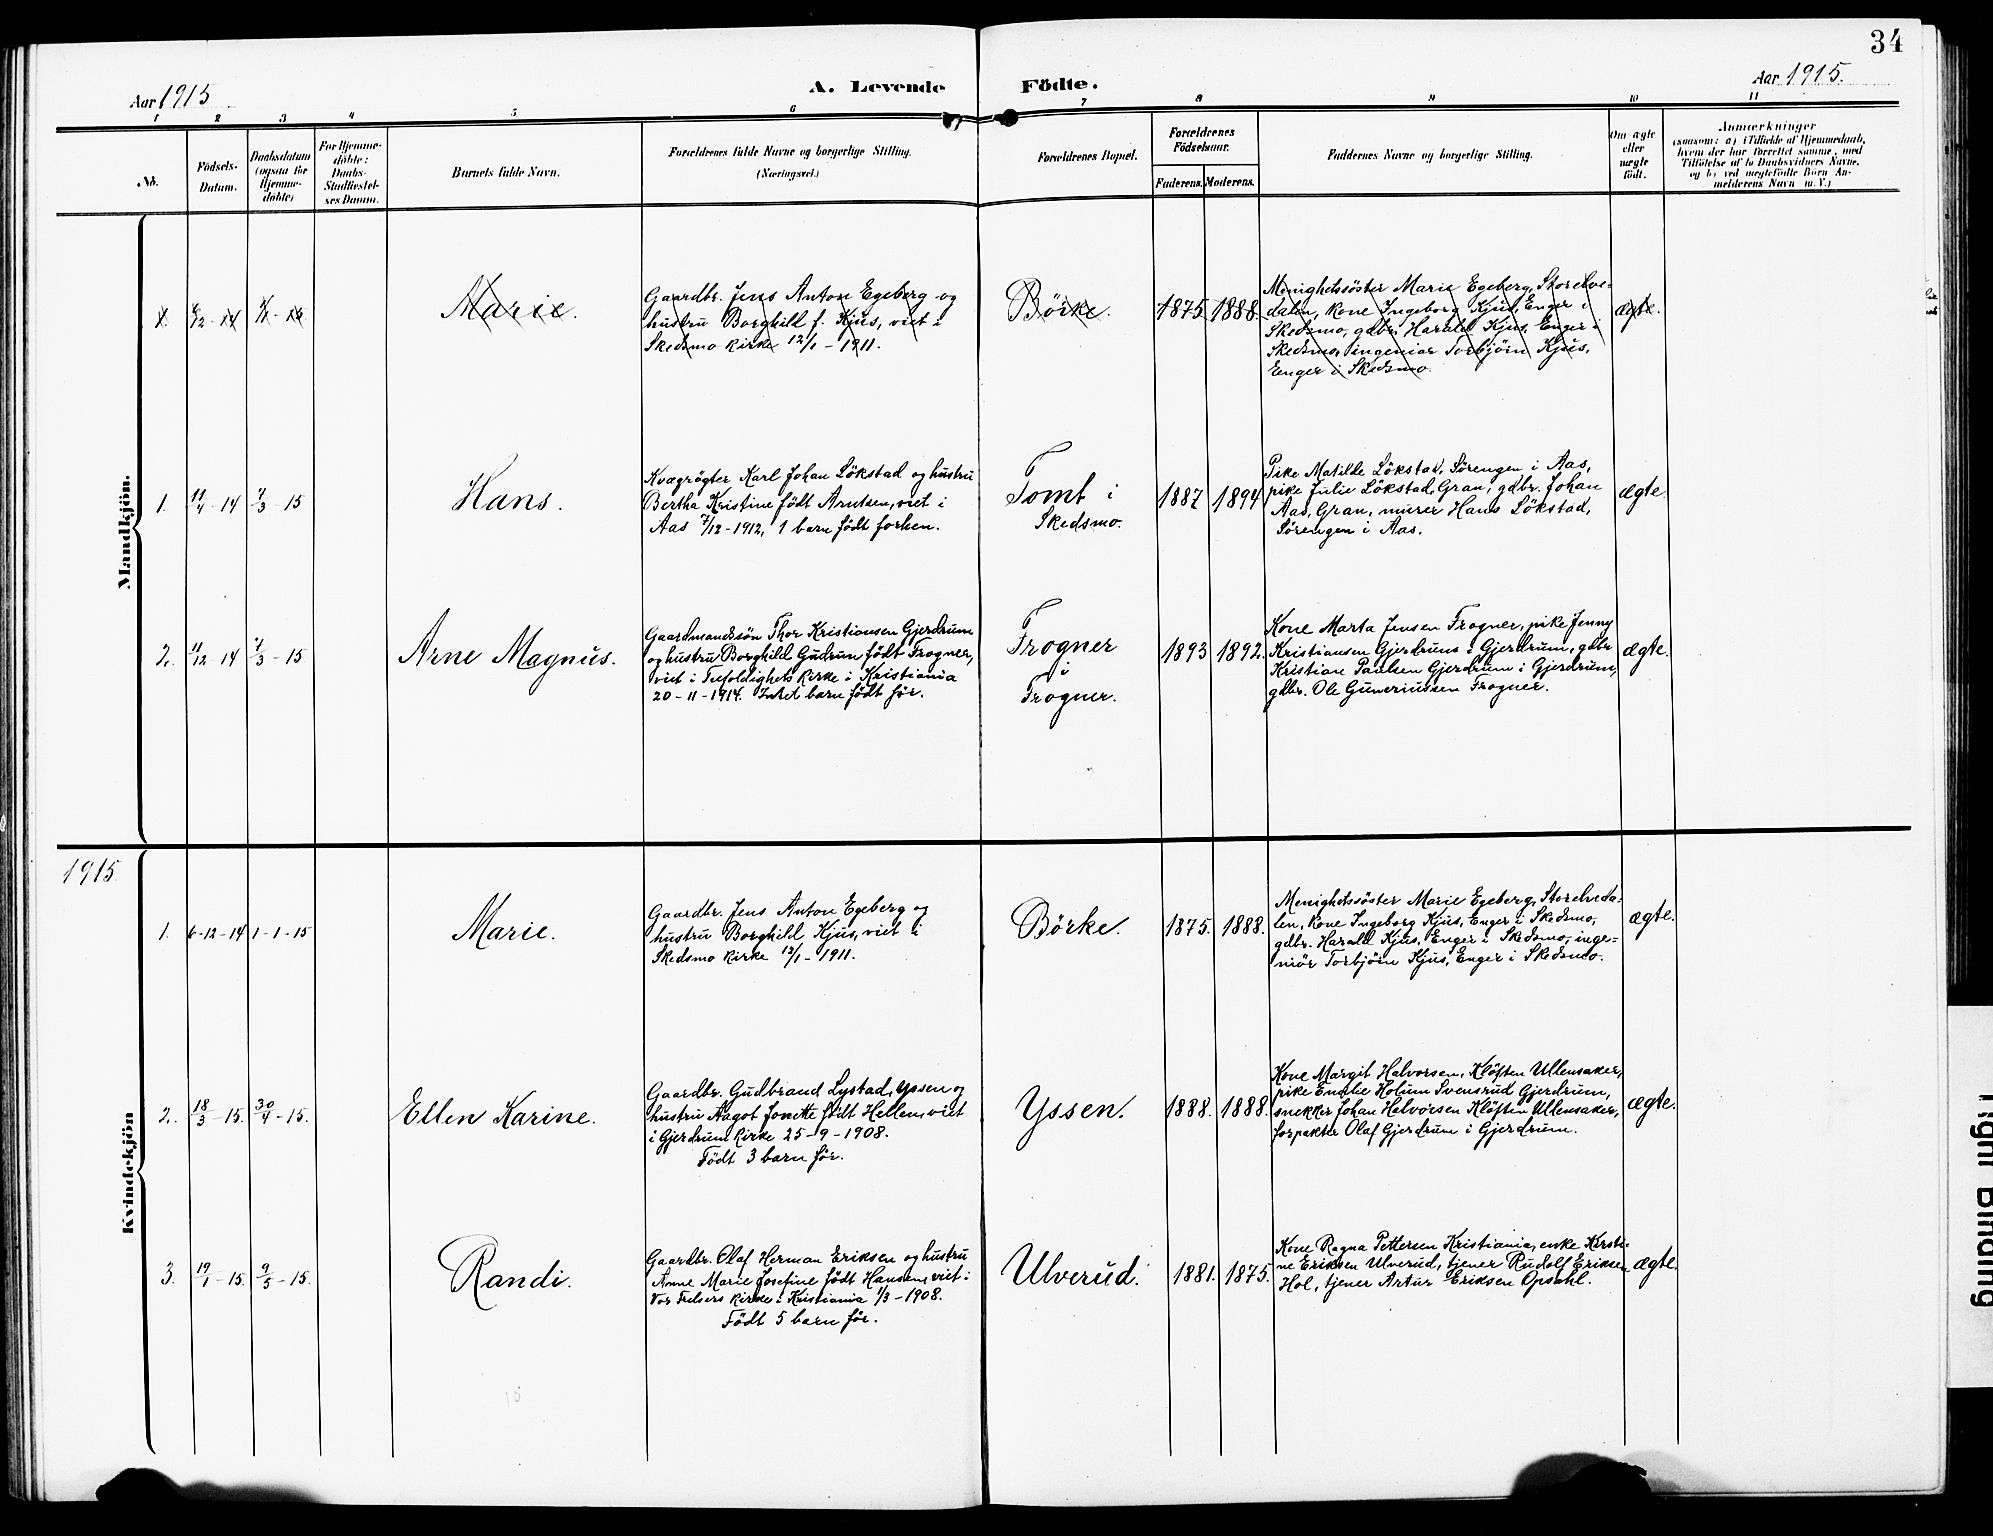 34
Aar 1915
A. Levende Födte.
Aar 1915.
1 2 3 4 5 6 7 8 9 10 11
No.
Födsels-Datum.
Daabsdatum (ogsaa for Hjemmedöbte)
For Hjemmedöbte: Daabs-Stadfæstelses Datum.
Barnets fulde Navn.
Forældrenes fulde Navne og borgerlige Stilling.
(Næringsvei.)
Forældrenes Bopæl.
Forældrenes Födselsaar.
Faderens. Moderens.
Faddernes Navne og borgerlige Stilling.
Om ægte eller uægte födt.
Anmærkninger
(saasom: a) i Tilfælde af Hjemmedaab,
hvem der har forrettet samme, med
Tilföielse af to Daabsvidners Navne,
og b) ved uægtefödte Börn An-
melderens Navn m. V.)
Mandkjön.
1. 6/12-14 1/1-15
Marie.
Gaardbr. Jens Anton Egeberg og
hustru Borghild f. Kjus, viet i
Skedsmo kirke 12/1-1911.
Börke.
1875 1888.
Menighetssöster Marie Egeberg, Storelve-
dalen, kone Ingeborg Kjus, Enger i
Skedsmo, gdbr. Harald Kjus, Enger i
Skedsmo, ingeniør Torbjörn Kjus,
Enger i Skedsmo.
ægte.
1. 11/4-14 7/3-15
Hans.
Kvægrögter Karl Johan Lökstad og hustru
Bertha Kristine födt Arntsen, viet i
Aas 7/12-1912, 1 barn födt forhen.
Tomt i
Skedsmo.
1887 1894
Pike Matilde Lökstad, Sörengen i Aas,
pike Julie Lökstad, Gran, gdbr. Johan
Aas, Gran, murer Hans Lökstad,
Sörengen i Aas.
ægte.
2. 11/12-14 7/3-15
Arne Magnus.
Gaardmandssön Thor Kristiansen Gjerdrum
og hustru Borghild Gudrun födt Frogner,
viet i Trefoldighets kirke i Kristiania
20-11-1914. Intet barn födt för.
Frogner
i
Frogner.
1893 1892.
Kone Marta Jensen Frogner, pike Jenny
Kristiansen Gjerdrum i Gjerdrum, gdbr
Kristian Paulsen Gjerdrum i Gjerdrum,
gdbr. Ole Guneriussen Frogner.
ægte.
1915.
Kvindekjön
1. 6-12-14 1-1-15
Marie.
Gaardbr. Jens Anton Egeberg og
hustru Borghild Kjus, viet i
Skedsmo kirke 12/1-1911.
Börke.
1875. 1888.
Menighetssöster Marie Egeberg, Storelveda-
len, kone Ingeborg Kjus, Enger i Skedsmo,
gdbr. Harald Kjus, Enger i Skedsmo, inge-
niör Torbjörn Kjus, Enger i Skedsmo.
ægte.
2. 18/3-15. 30/4-15.
Ellen Karine.
Gaardbr. Gudbrand Lystad, Yssen og
hustru Aagot Jonette födt Hellen, viet
i Gjerdrum kirke 25-9-1908.
Födt 3 barn för.
Yssen.
1888. 1888.
Kone Margit Halvorsen, Klöften Ullensaker,
pike Emilie Holum Svensrud Gjerdrum,
snekker Johan Halvorsen Klöften Ullensaker,
forpakter Olaf Gjerdrum i Gjerdrum.
ægte.
3. 19/1-15. 9/5-15.
Randi.
Gaardbr. Olaf Herman Eriksen og hustru
Anne Marie Josefine födt Hansen, viet i
Vor Frelsers kirke i Kristiania 1/3-1908.
Födt 5 barn för.
Ulverud.
1881. 1875.
Kone Ragna Pettersen Kristiania, enke Kirsti-
ne Eriksen Ulverud, tjener Rudolf Eriksen
Hol, tjener Artur Eriksen Opsahl.
ægte.